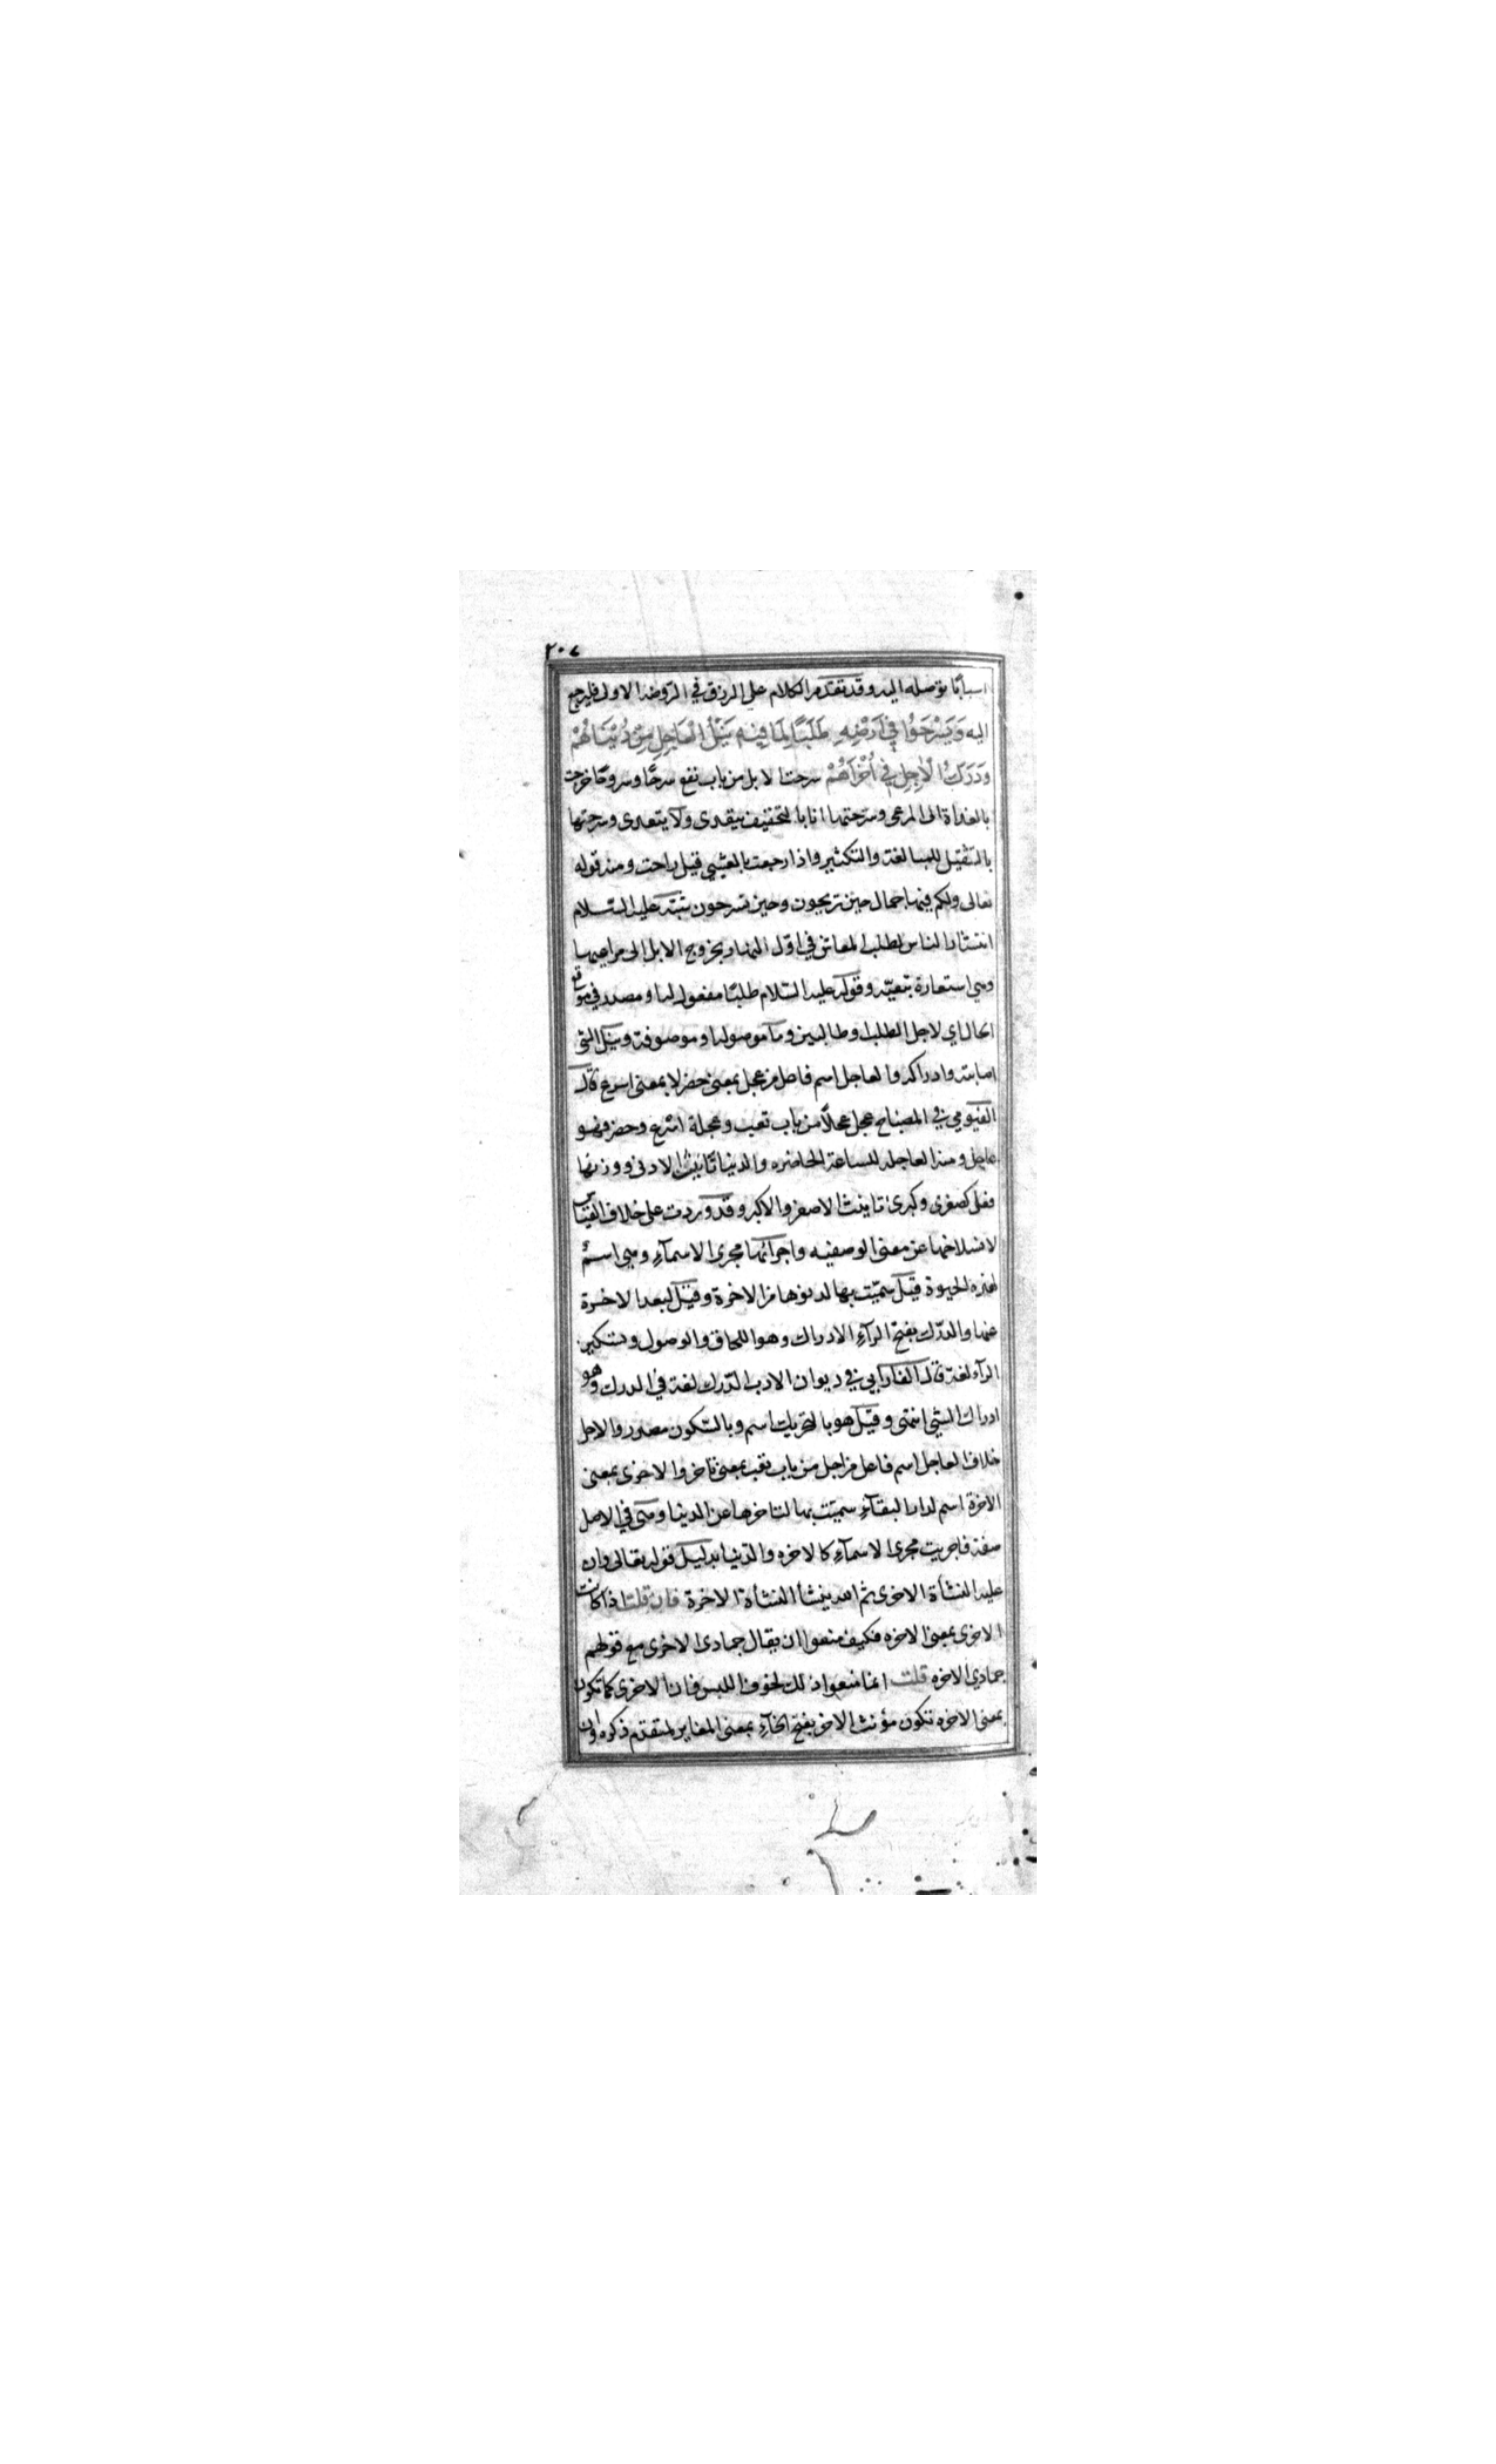 ٢٠٧
اسبابا توصله اليه وقد تقدم الكلام على الرزق في الروضة الاولى فليرجع
اليه وَيَسْرَحُوا فِي اَرْضِهِ طَلَبًا لِمَا فِيهِ نَيْلُ الْعَاجِلِ مِنْ دُنْيَاهُمْ
وَدَرَكُ الْآجِلِ فِي اُخْرَاهُمْ سرحت الابل من باب نفع سرحًا وسروحًا خرجت
بالغداة الى المرعى وسرحتها انا بالتخفيف يتعدى ولا يتعدى وسرحتها
بالتثقيل للمبالغة والتكثير واذا رجعت بالعشي قيل راحت ومنه قوله
تعالى ولكم فيها جمال حين تريحون وحين تسرحون شبّه عليه السّلام
انتشار الناس لطلب المعاش في اوّل النهار بخروج الابل الى مراعيها
وهي استعارة تبعيّه وقوله عليه السّلام طلبًا مفعول له او مصدر في موقع
الحال اي لاجل الطلب او طالبين وما موصوله او موصوفة ونيل الشي
اصابته وادراكه والعاجل اسم فاعل من عجل بمعنى حضر لا بمعنى اسرع قال
الفيّومي في المصباح عجل عجلاً من باب تعب وعجلة اسْرع وحضر فهو
عاجل ومنه العاجله للساعة الحاضره والدنيا تانيث الادنى ووزنها
فعلى كصغرى وكبرى تانيث الاصغر والاكبر وقد وردت على خلاف القياس
لانسلاخها عن معنى الوصفيه واجرائها مجرى الاسمآءِ وهي اسمٌ
لهذه الحيوة قيل سمّيت بها لدنوها من الاخرة وقيل لبعد الاخرة
عنها والدرَك بفتح الرآءِ الادراك وهو اللحاق والوصول وتسكين
الرآء لغة قال الفارابي في ديوان الادب الدّرك لغة في الدرك وهو
ادراك الشي انتهى وقيل هو بالتحريك اسم وبالسّكون مصدر والاجل
خلاف العاجل اسم فاعل من اجل من باب تعب بمعنى تاخر والاخرى بمعنى
الآخرة اسم لدار البقآءِ سميّت بها لتاخرها عن الدنيا وهي في الاصل
صفة فاجريت مجرى الاسمآءِ كالاخره والدّنيا بدليل قوله تعالى وان
عليه النشأة الاخرى ثم الله ينشأ النشأة الاخرة فان قلت اذا كانت
الاخرى بمعنى الاخره فكيف منعوا ان يقال جمادى الاخرى مع قولهم
جمادي الاخره قلت انما منعوا ذلك لخوف اللبس فان الاخرى كما تكون
بمعنى الاخره تكون مؤنث الاخر بفتح الخآءِ بمعنى المغاير لمتقدم ذكره وان